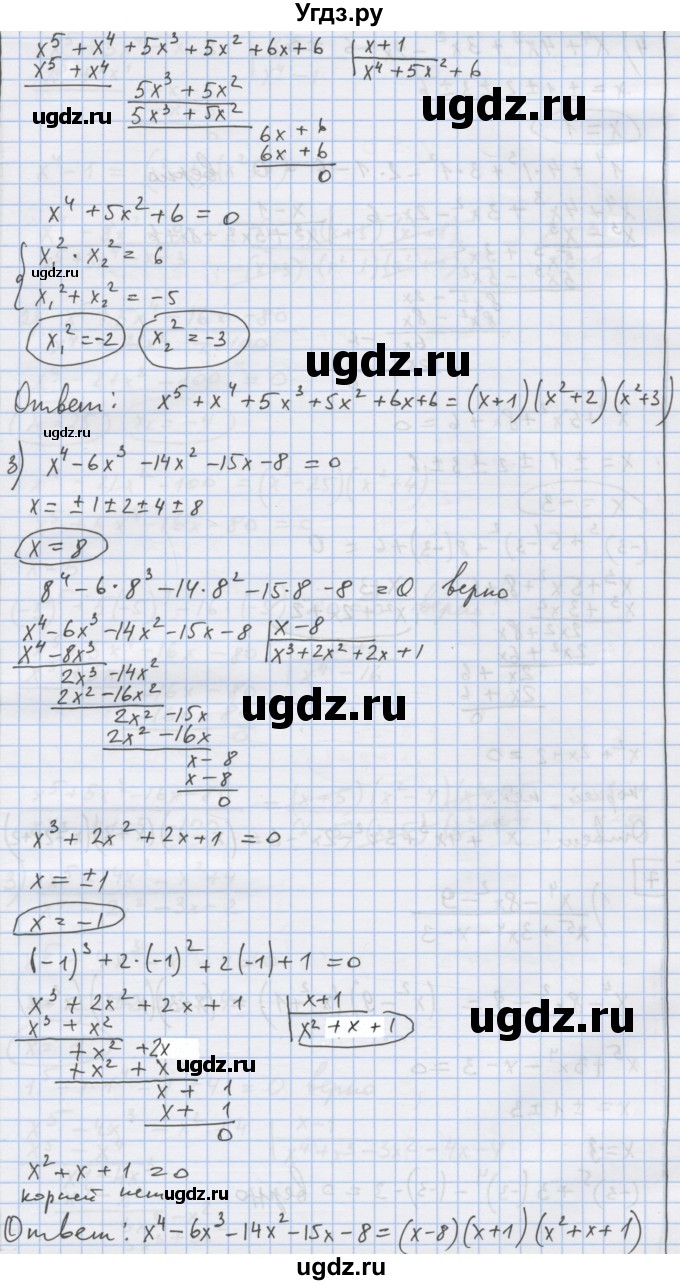 Угдз.ру
x⁵ + x⁴ + 5x³ + 5x² + 6x + 6 | x + 1
x⁵ + x⁴ x⁴ + 5x² + 6
ugdz.ru 5x³ + 5x² ugdz.ru
5x³ + 5x²
6x + 6
6x + 6
0
x⁴ + 5x² + 6 = 0
{ x₁² · x₂² = 6
ugdz.ru
x₁² + x₂² = -5
x₁² = -2 x₂² = -3
ugdz.ru
Ответ: x⁵ + x⁴ + 5x³ + 5x² + 6x + 6 = (x+1)(x²+2)(x²+3)
ugdz.ru
3) x⁴ - 6x³ - 14x² - 15x - 8 = 0
x = ±1 ±2 ±4 ±8
x = 8
8⁴ - 6·8³ - 14·8² - 15·8 - 8 = 0 верно
x⁴ - 6x³ - 14x² - 15x - 8 | x - 8
x⁴ - 8x³ x³ + 2x² + 2x + 1
2x³ - 14x²
2x² - 16x²
ugdz.ru
2x² - 15x
2x² - 16x
x - 8
x - 8
0
x³ + 2x² + 2x + 1 = 0
x = ±1
x = -1
(-1)³ + 2·(-1)² + 2(-1) + 1 = 0
x³ + 2x² + 2x + 1 | x + 1
x³ + x² x² + x + 1
ugdz.ru
+ x² + 2x
+ x² + x ugdz.ru
x + 1
x + 1
0
x² + x + 1 = 0
корней нет ugdz.ru
Ответ: x⁴ - 6x³ - 14x² - 15x - 8 = (x-8)(x+1)(x²+x+1)
ugdz.ru